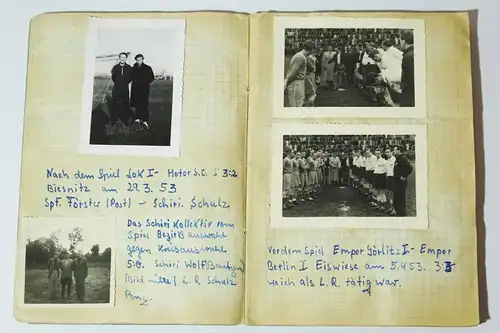 Nach dem Spiel Lok I - Motor S.O. I 3:2
Biesnitz am 29.3.53
Spf. Förster (Post) - Schiri. Schulz
Das Schiri Kollektiv vom
Spiel Bezirksauswahl
gegen Kreisauswahl
5:0. Schiri Wolf (Bautzen)
(Bild mitte) L.R Schulz
Vor dem Spiel Empor Görlitz I - Empor
Berlin I Eiswiese am 5.4.53. 3:3
wo ich als L.R. tätig war.